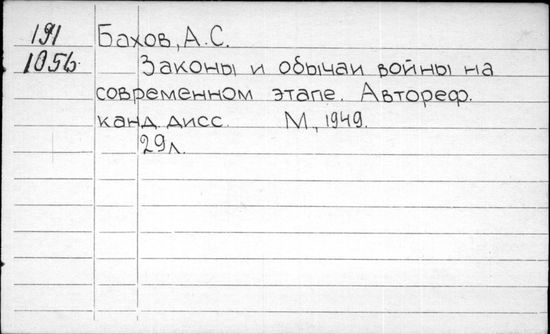 191 Бахов, А.С.
1056 Законы и обычаи войны на
современном этапе. Автореф.
канд. дисс. М., 1949.
29л.